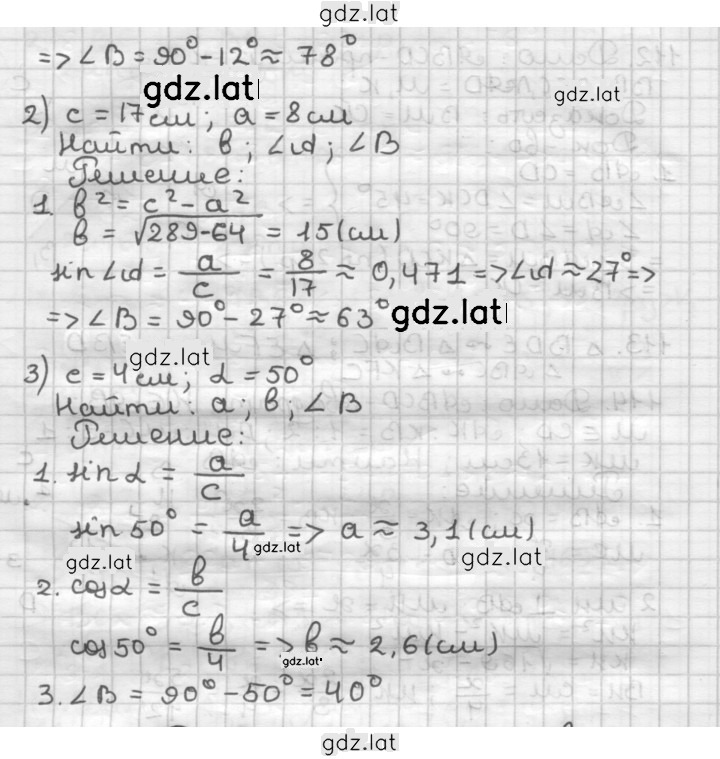 gdz.lat
=> ∠B = 90° - 12° ≈ 78°
gdz.lat
gdz.lat
2) c = 17 см; a = 8 см
Найти: b; ∠α; ∠B
Решение:
1. b² = c² - a²
b = √289-64 = 15(см)
sin∠α = a/c = 8/17 ≈ 0,471 => ∠α ≈ 27° =>
=> ∠B = 90° - 27° ≈ 63°
gdz.lat
gdz.lat
3) c = 4 см; α = 50°
Найти: a; b; ∠B
Решение:
1. sin α = a/c
sin 50° = a/4 => a ≈ 3,1(см)
gdz.lat
gdz.lat
gdz.lat
2. cos α = b/c
cos 50° = b/4 => b ≈ 2,6(см)
gdz.lat
3. ∠B = 90° - 50° = 40°
gdz.lat